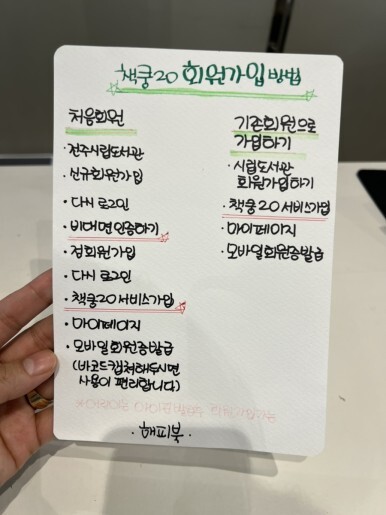 책쿵20 회원가입 방법
처음회원
· 전주시립도서관
· 신규회원가입
· 다시 로그인
· 비대면 인증하기
· 정회원가입
· 다시 로그인
· 책쿵20 서비스가입
· 마이페이지
· 모바일회원증발급
(바코드캡쳐해두시면
사용이 편리합니다)
기존회원으로
가입하기
· 시립도서관
회원가입하기
· 책쿵20 서비스가입
· 마이페이지
· 모바일회원증발급
· 해피북 ·